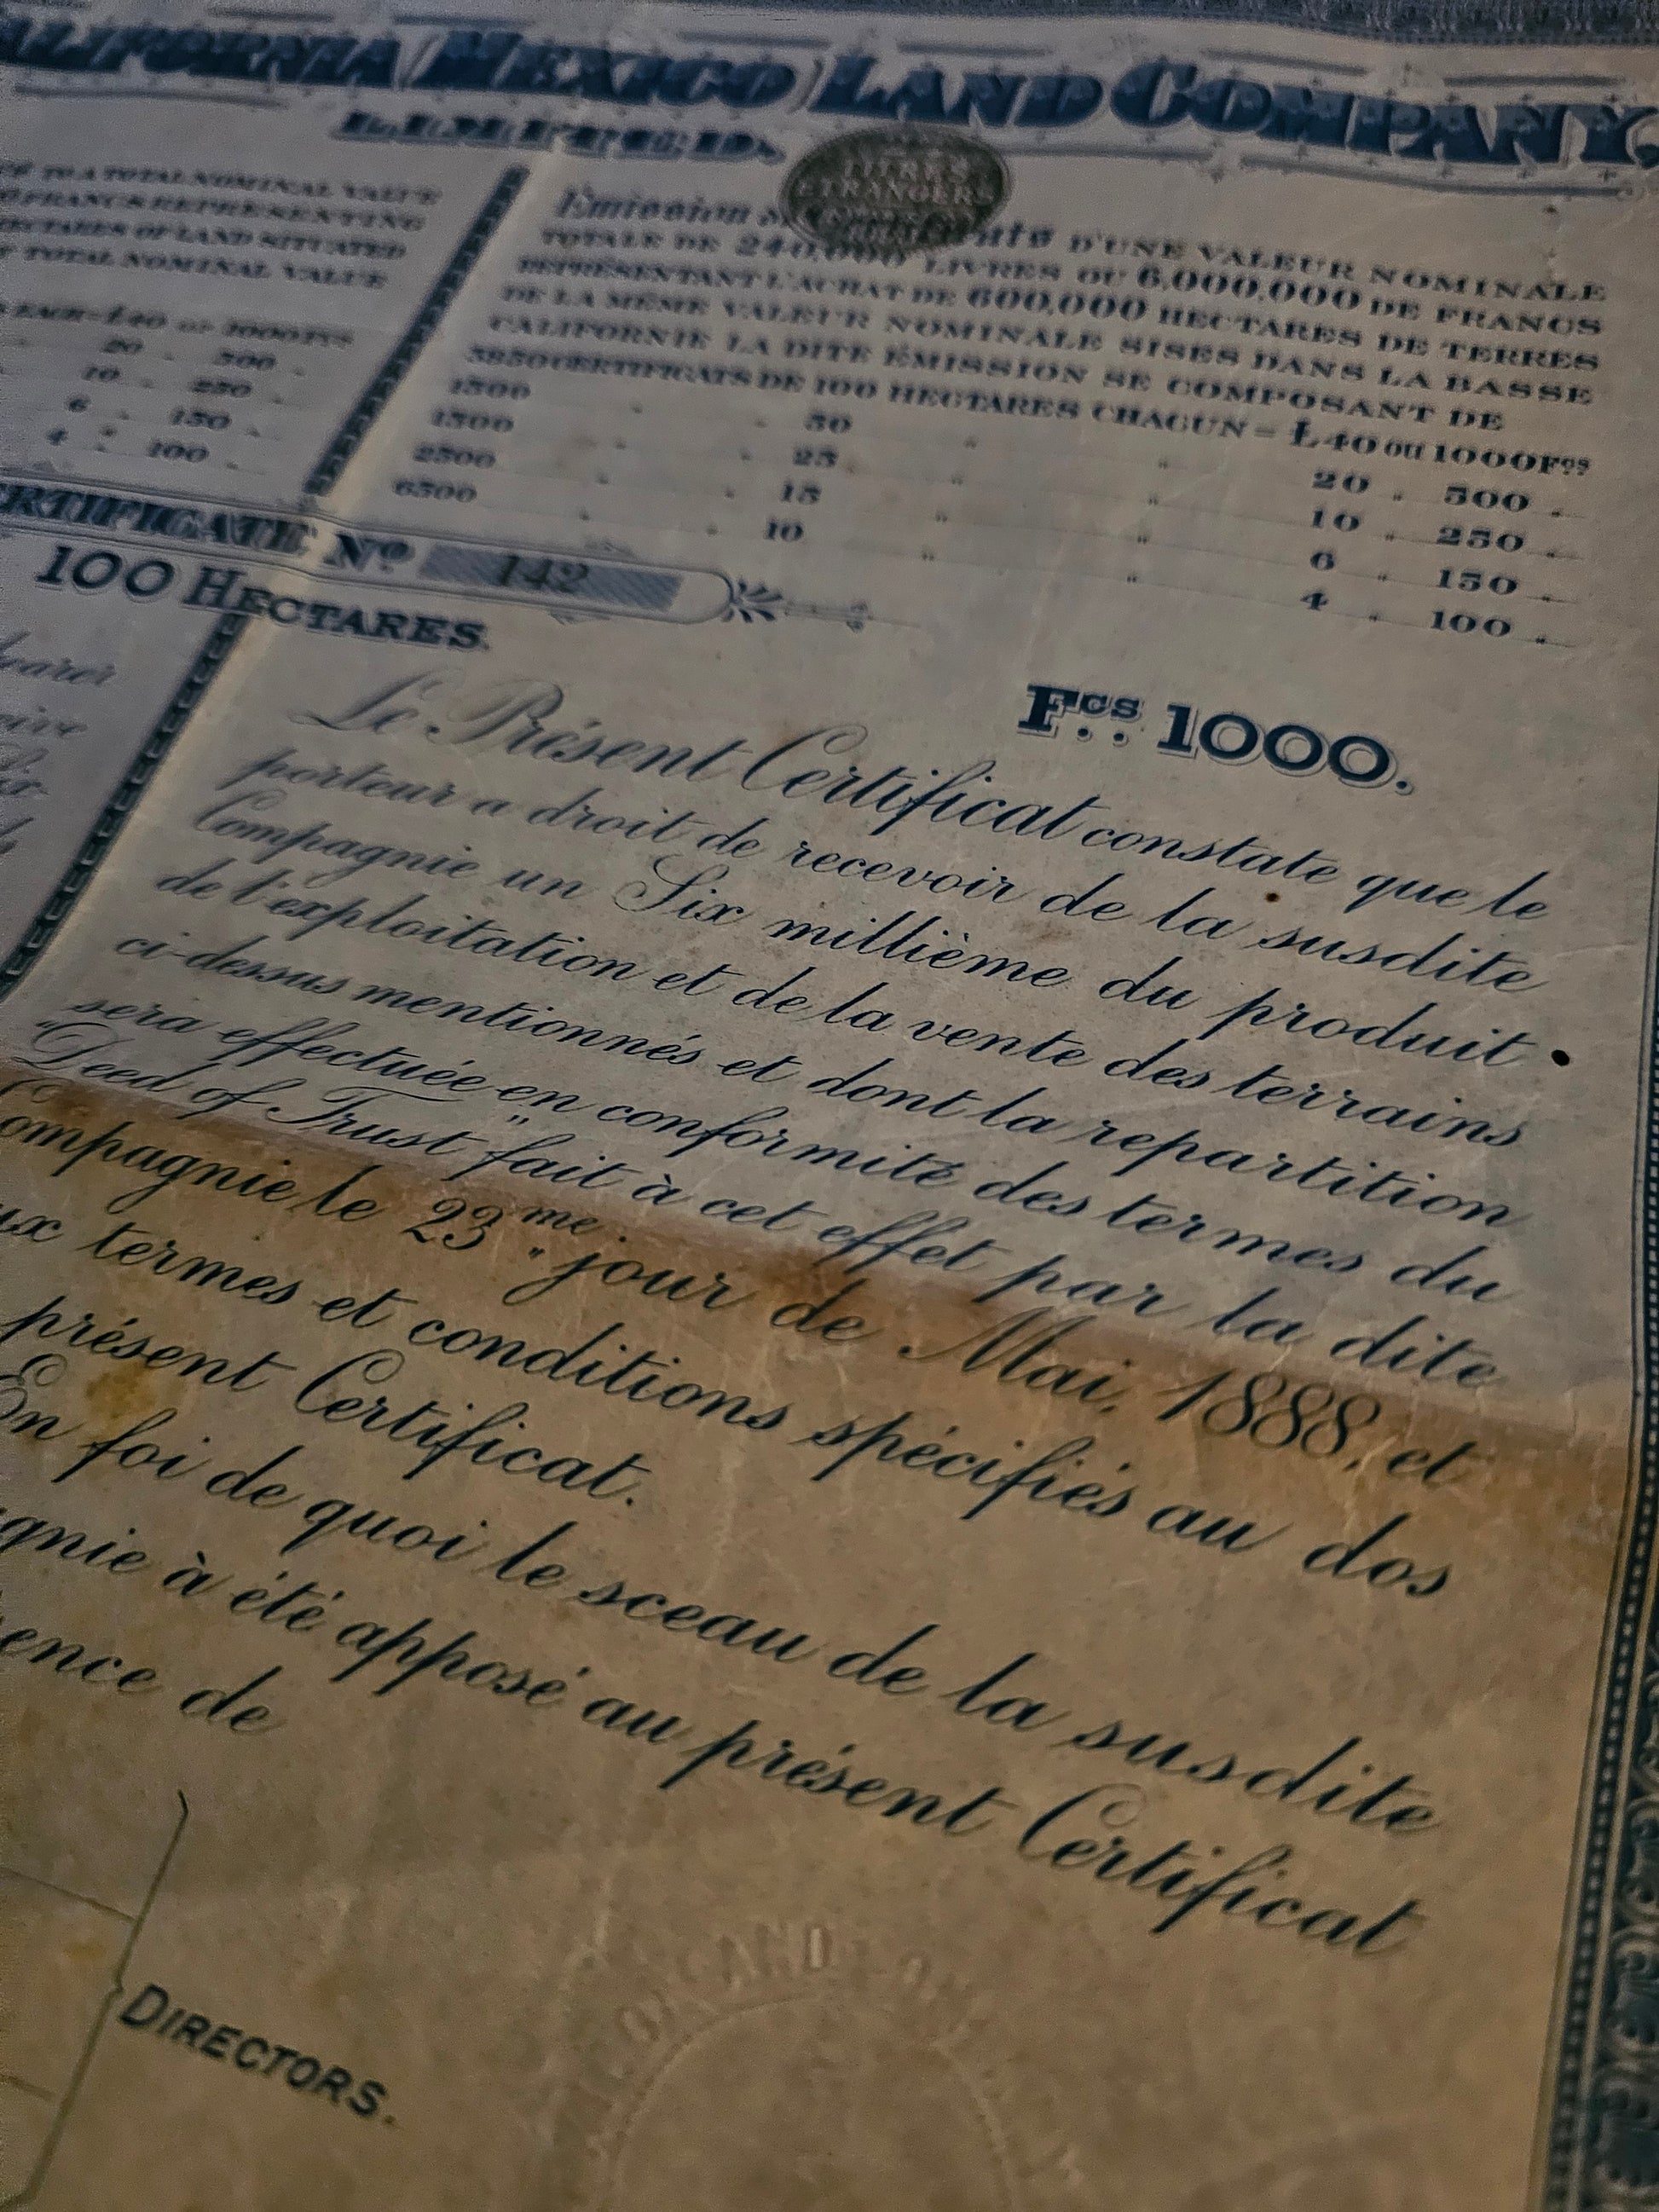 ALIFORNIA (MEXICO) LAND COMPANY,
LIMITED.
TITRES
ETRANGERS
TO A TOTAL NOMINAL VALUE
FRANCS REPRESENTING
HECTARES OF LAND SITUATED
TOTAL NOMINAL VALUE
EACH = £40 or 1000 Fcs
20 " 500 "
10 " 250 "
6 " 150 "
4 " 100 "
Émission D'UNE VALEUR NOMINALE
TOTALE DE 240,000 LIVRES OU 6,000,000 DE FRANCS
REPRÉSENTANT L'ACHAT DE 600,000 HECTARES DE TERRES
DE LA MÊME VALEUR NOMINALE SISES DANS LA BASSE
CALIFORNIE LA DITE ÉMISSION SE COMPOSANT DE
3850 CERTIFICATS DE 100 HECTARES CHACUN = £40 OU 1000 Fcs
1300 " " 50 " " 20 " 500 "
1300 " " 25 " " 10 " 250 "
2500 " " 15 " " 6 " 150 "
6500 " " 10 " " 4 " 100 "
ERTIFICATE No 142
100 HECTARES.
Fcs 1000.
bearer
Le Présent Certificat constate que le
porteur a droit de recevoir de la susdite
Compagnie un Six millième du produit
de l'exploitation et de la vente des terrains
ci-dessus mentionnés et dont la repartition
sera effectuée en conformité des termes du
"Deed of Trust" fait à cet effet par la dite
ompagnie le 23me jour de Mai, 1888, et
ux termes et conditions spécifiés au dos
présent Certificat.
En foi de quoi le sceau de la susdite
gnie à été apposé au présent Certificat
ence de
DIRECTORS.
LAND